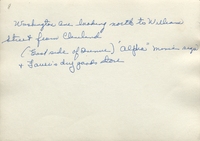 Washington Ave looking north to Williams
Street from Cleveland
(East side of Avenue) "Alpha" movie sign
& Lauer's dry goods store